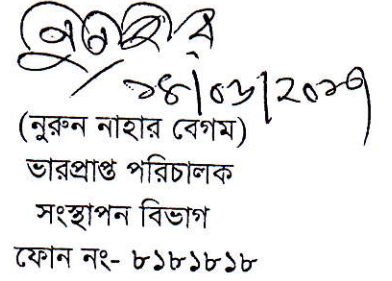 (নুরুন নাহার বেগম)
ভারপ্রাপ্ত পরিচালক
সংস্থাপন বিভাগ
ফোন নং- ৮১৮১৮১৮